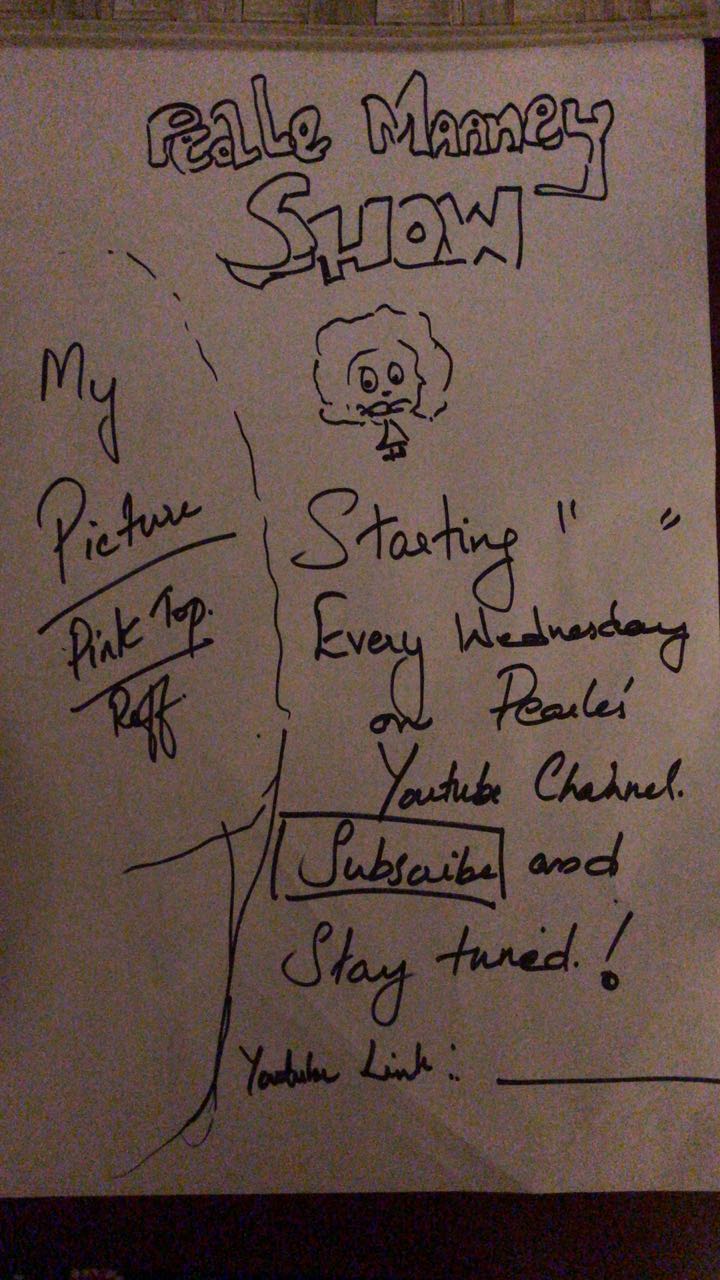 Pealle Maaney
SHOW
My
Picture
Pink Top.
Reff.
Starting " "
Every Wednesday
on Pearles'
Youtube Channel.
Subscribe and
Stay tuned.!
Youtube Link: